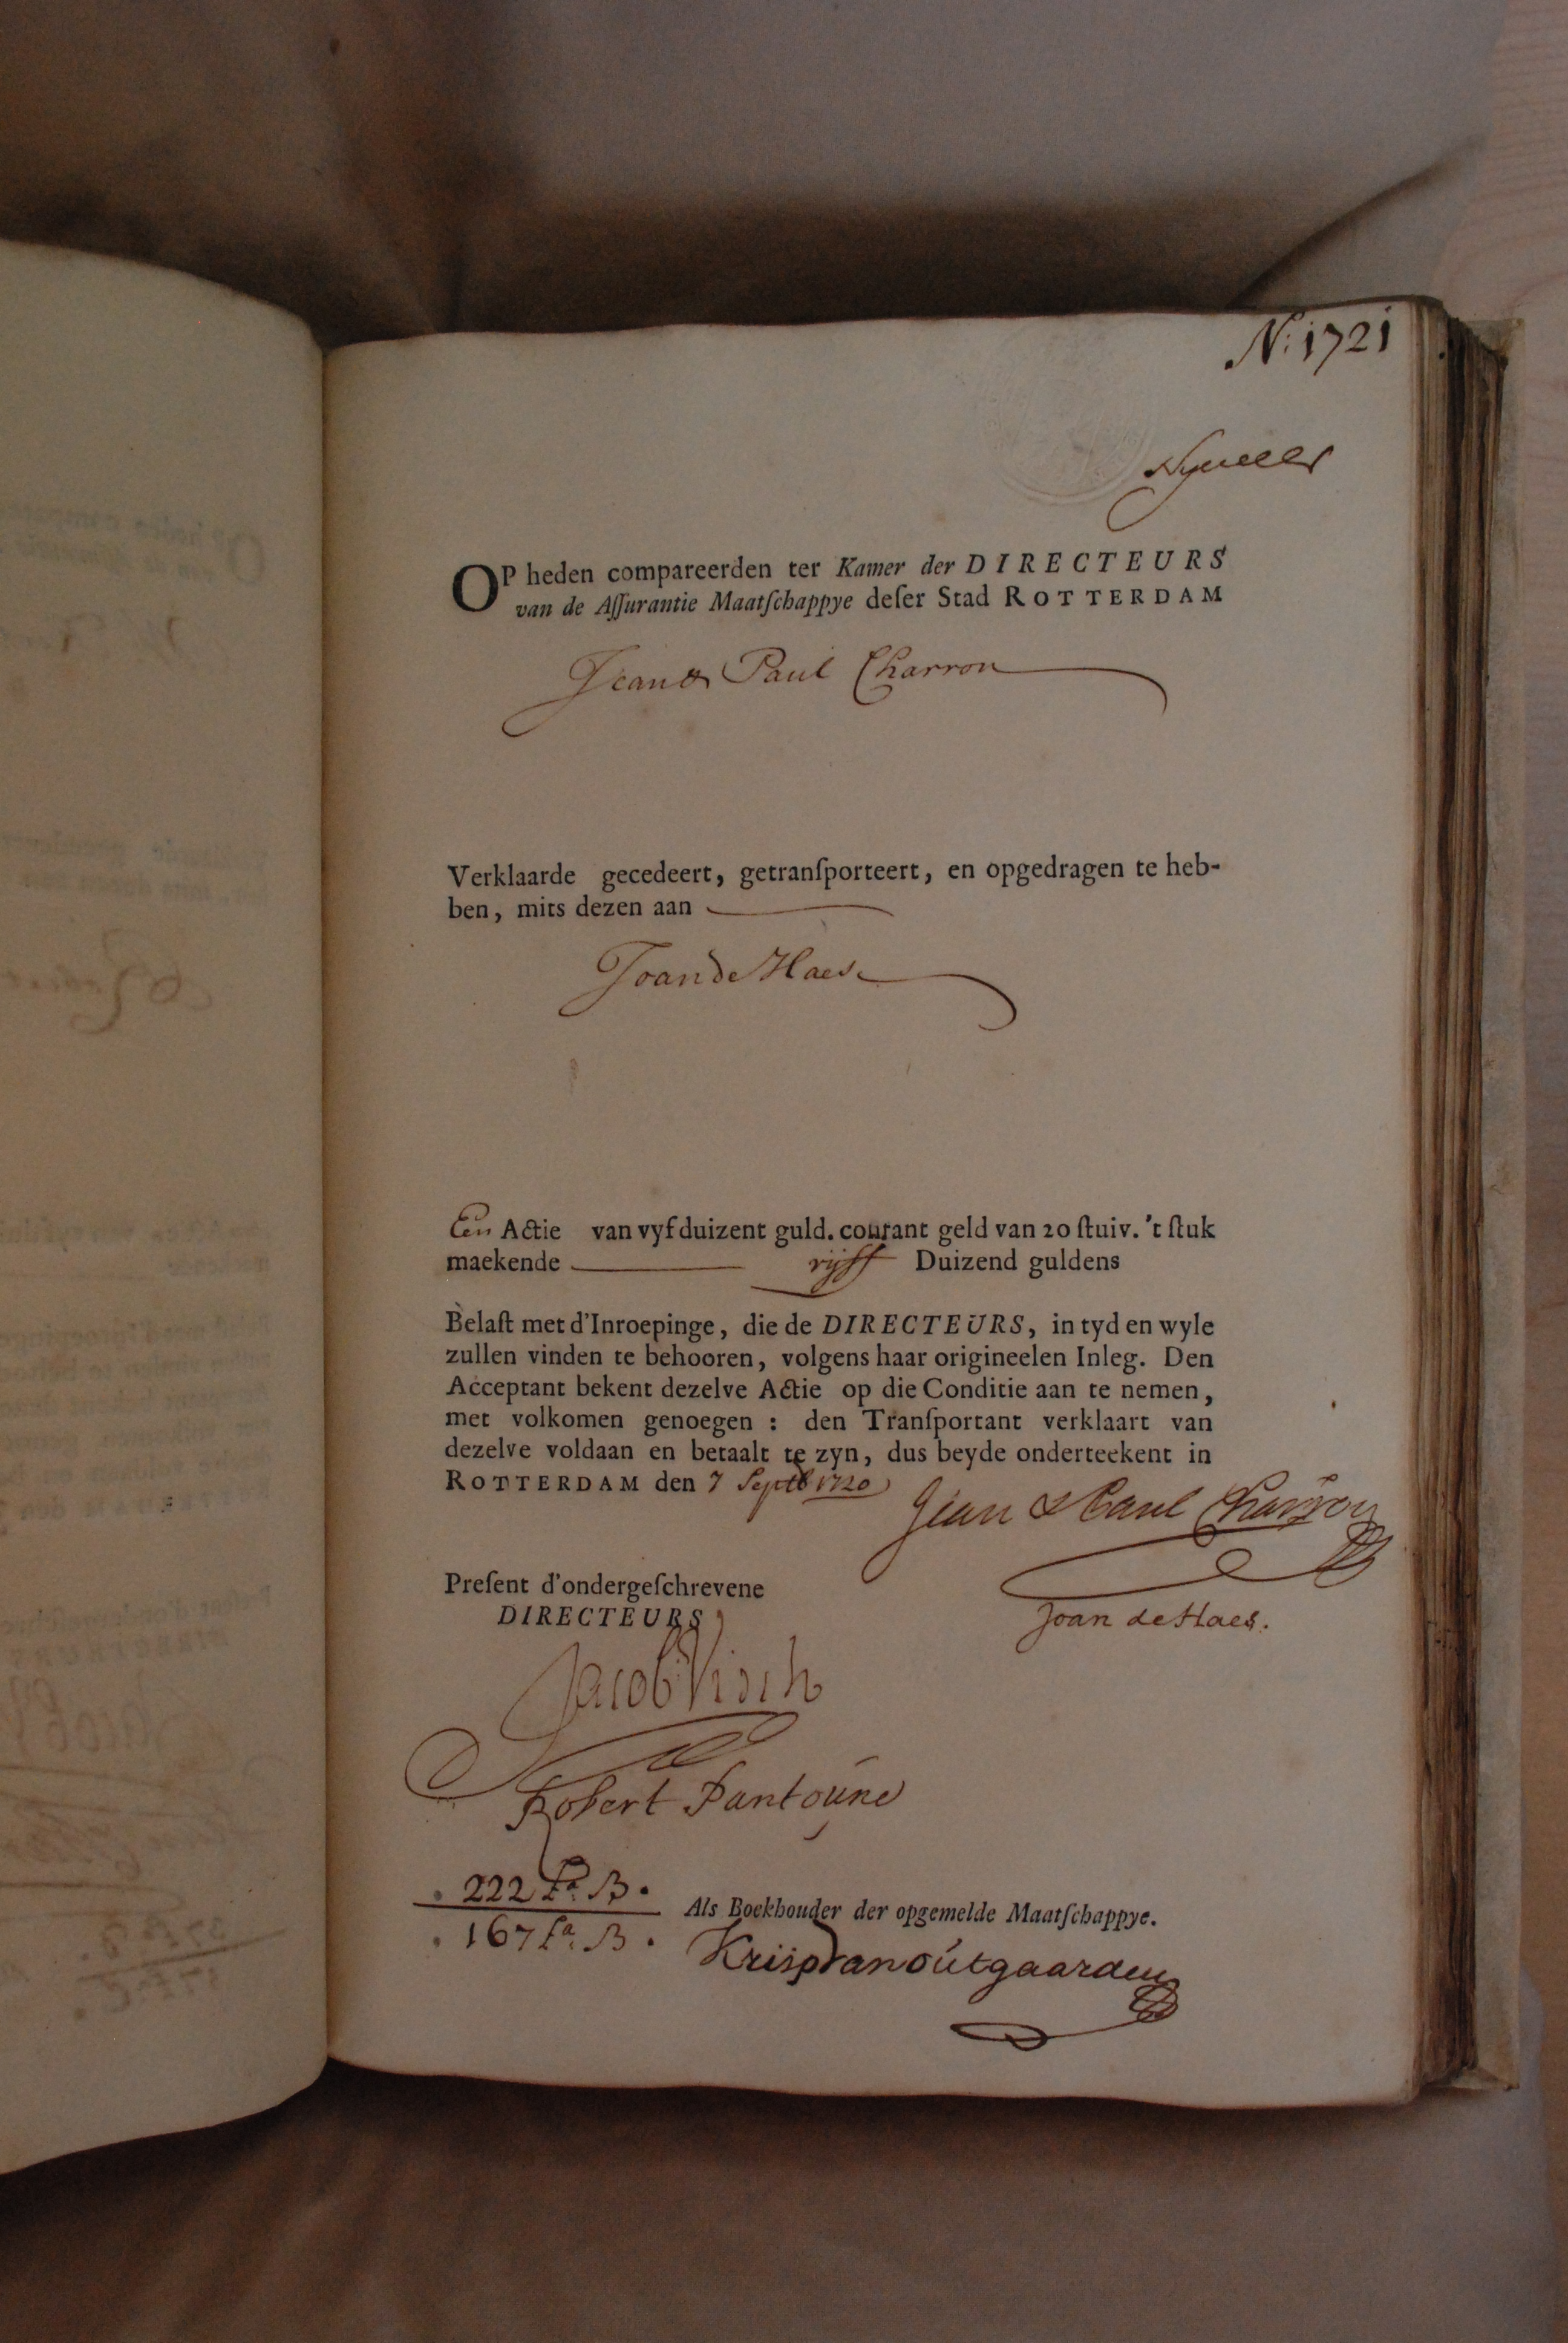 N: 1721
OP heden compareerden ter Kamer der DIRECTEURS
van de Aſſurantie Maatſchappye deſer Stad ROTTERDAM
Jean & Paul Charron
Verklaarde gecedeert, getranſporteert, en opgedragen te heb-
ben, mits dezen aan
Joan de Haes
Een Actie van vyf duizent guld. courant geld van 20 ſtuiv. 't ſtuk
maekende vijff Duizend guldens
Belaſt met d'Inroepinge, die de DIRECTEURS, in tyd en wyle
zullen vinden te behooren, volgens haar origineelen Inleg. Den
Acceptant bekent dezelve Actie op die Conditie aan te nemen,
met volkomen genoegen : den Tranſportant verklaart van
dezelve voldaan en betaalt te zyn, dus beyde onderteekent in
ROTTERDAM den 7 Septb 1720
Jean & Paul Charron
Preſent d'ondergeſchrevene
DIRECTEURS
Joan de Haes.
Jacob Visch
Robert Pantoúne
222 Fa. B.
Als Boekhouder der opgemelde Maatſchappye.
167 fa. B.
Krisp van oútgaarden